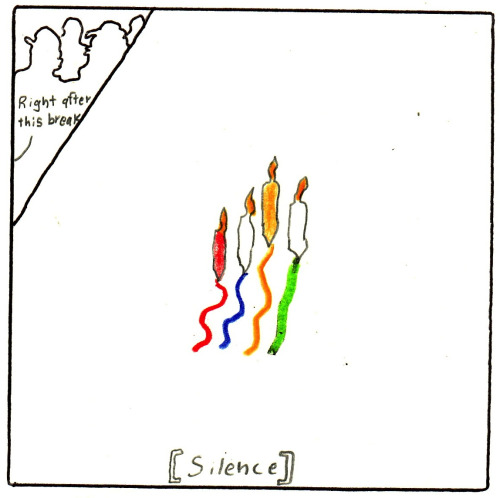 Right after
this break
[Silence]